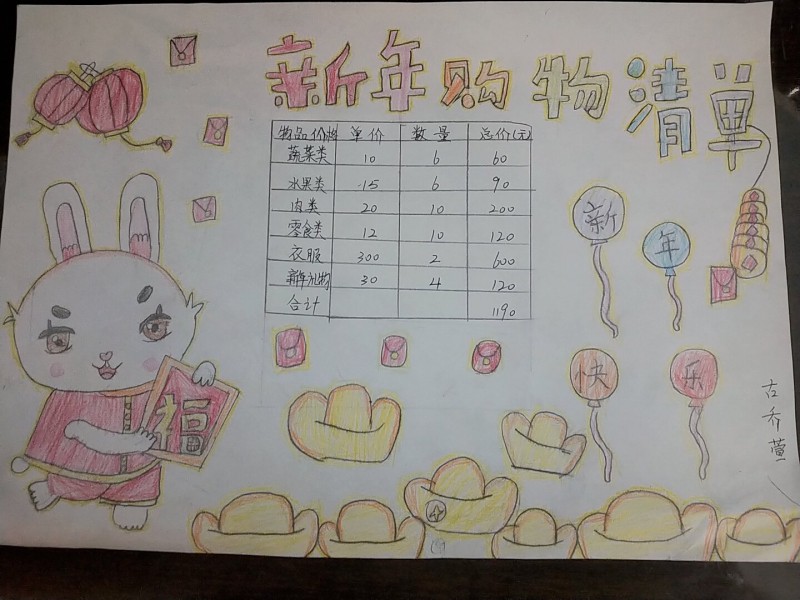 新年购物清单
物品价格 单价 数量 总价(元)
蔬菜类 10 6 60
水果类 15 6 90
肉类 20 10 200
零食类 12 10 120
衣服 300 2 600
新年礼物 30 4 120
合计 1190
新
年
快
乐
福
古乔萱